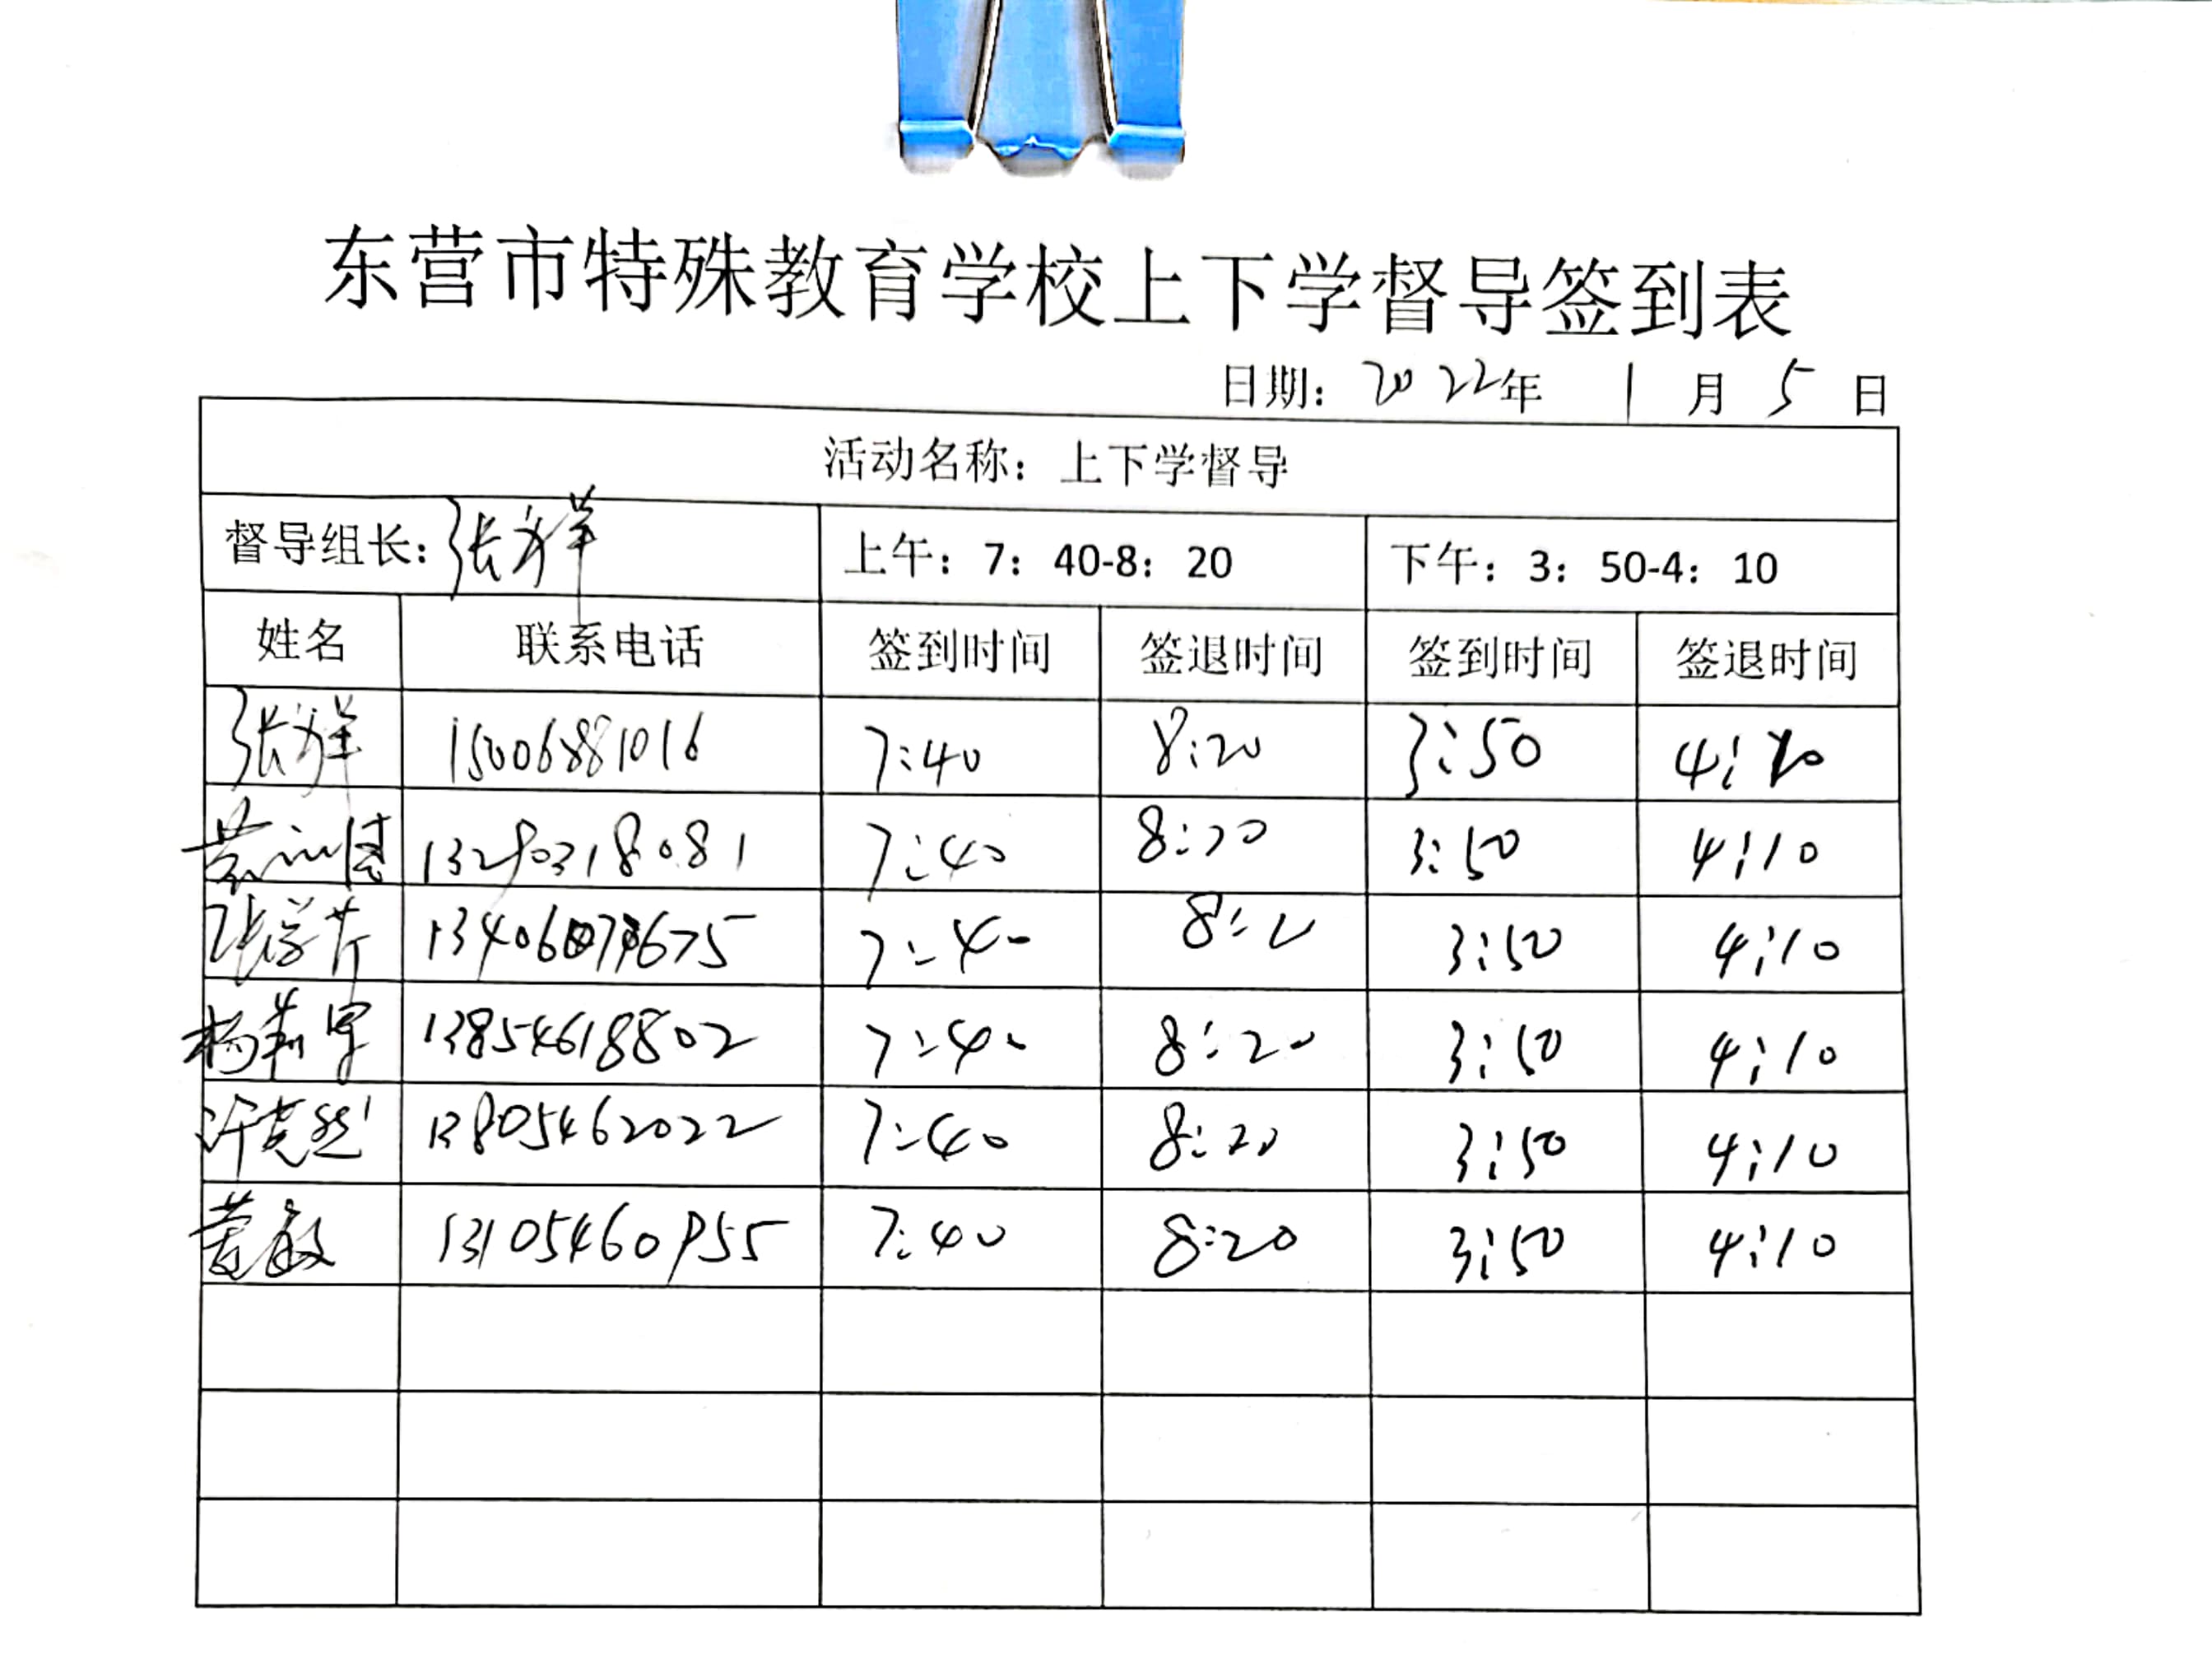 东营市特殊教育学校上下学督导签到表
日期：2022年 1 月 5 日
活动名称：上下学督导
督导组长：张洋 上午：7：40-8：20 下午：3：50-4：10
姓名 联系电话 签到时间 签退时间 签到时间 签退时间
张洋 15006881016 7:40 8:20 3:50 4:10
13290318081 7:40 8:20 3:50 4:10
张学芹 7:40 8:20 3:50 4:10
杨 13854618802 7:40 8:20 3:50 4:10
许 13805462022 7:40 8:20 3:50 4:10
董敏 13105460955 7:40 8:20 3:50 4:10